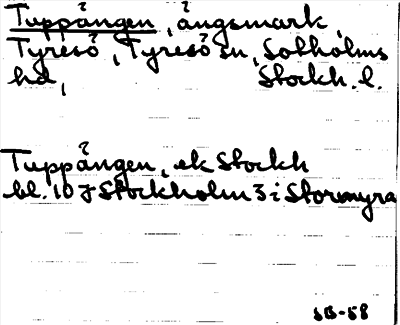 Tuppången, ångsmark,
Tyresö, Tyresö sn, Sotholms
hd, Stockh. l.
Tuppången, ek Stockh
bl. 107 Stockholm 3 i Stormyra
SB-58